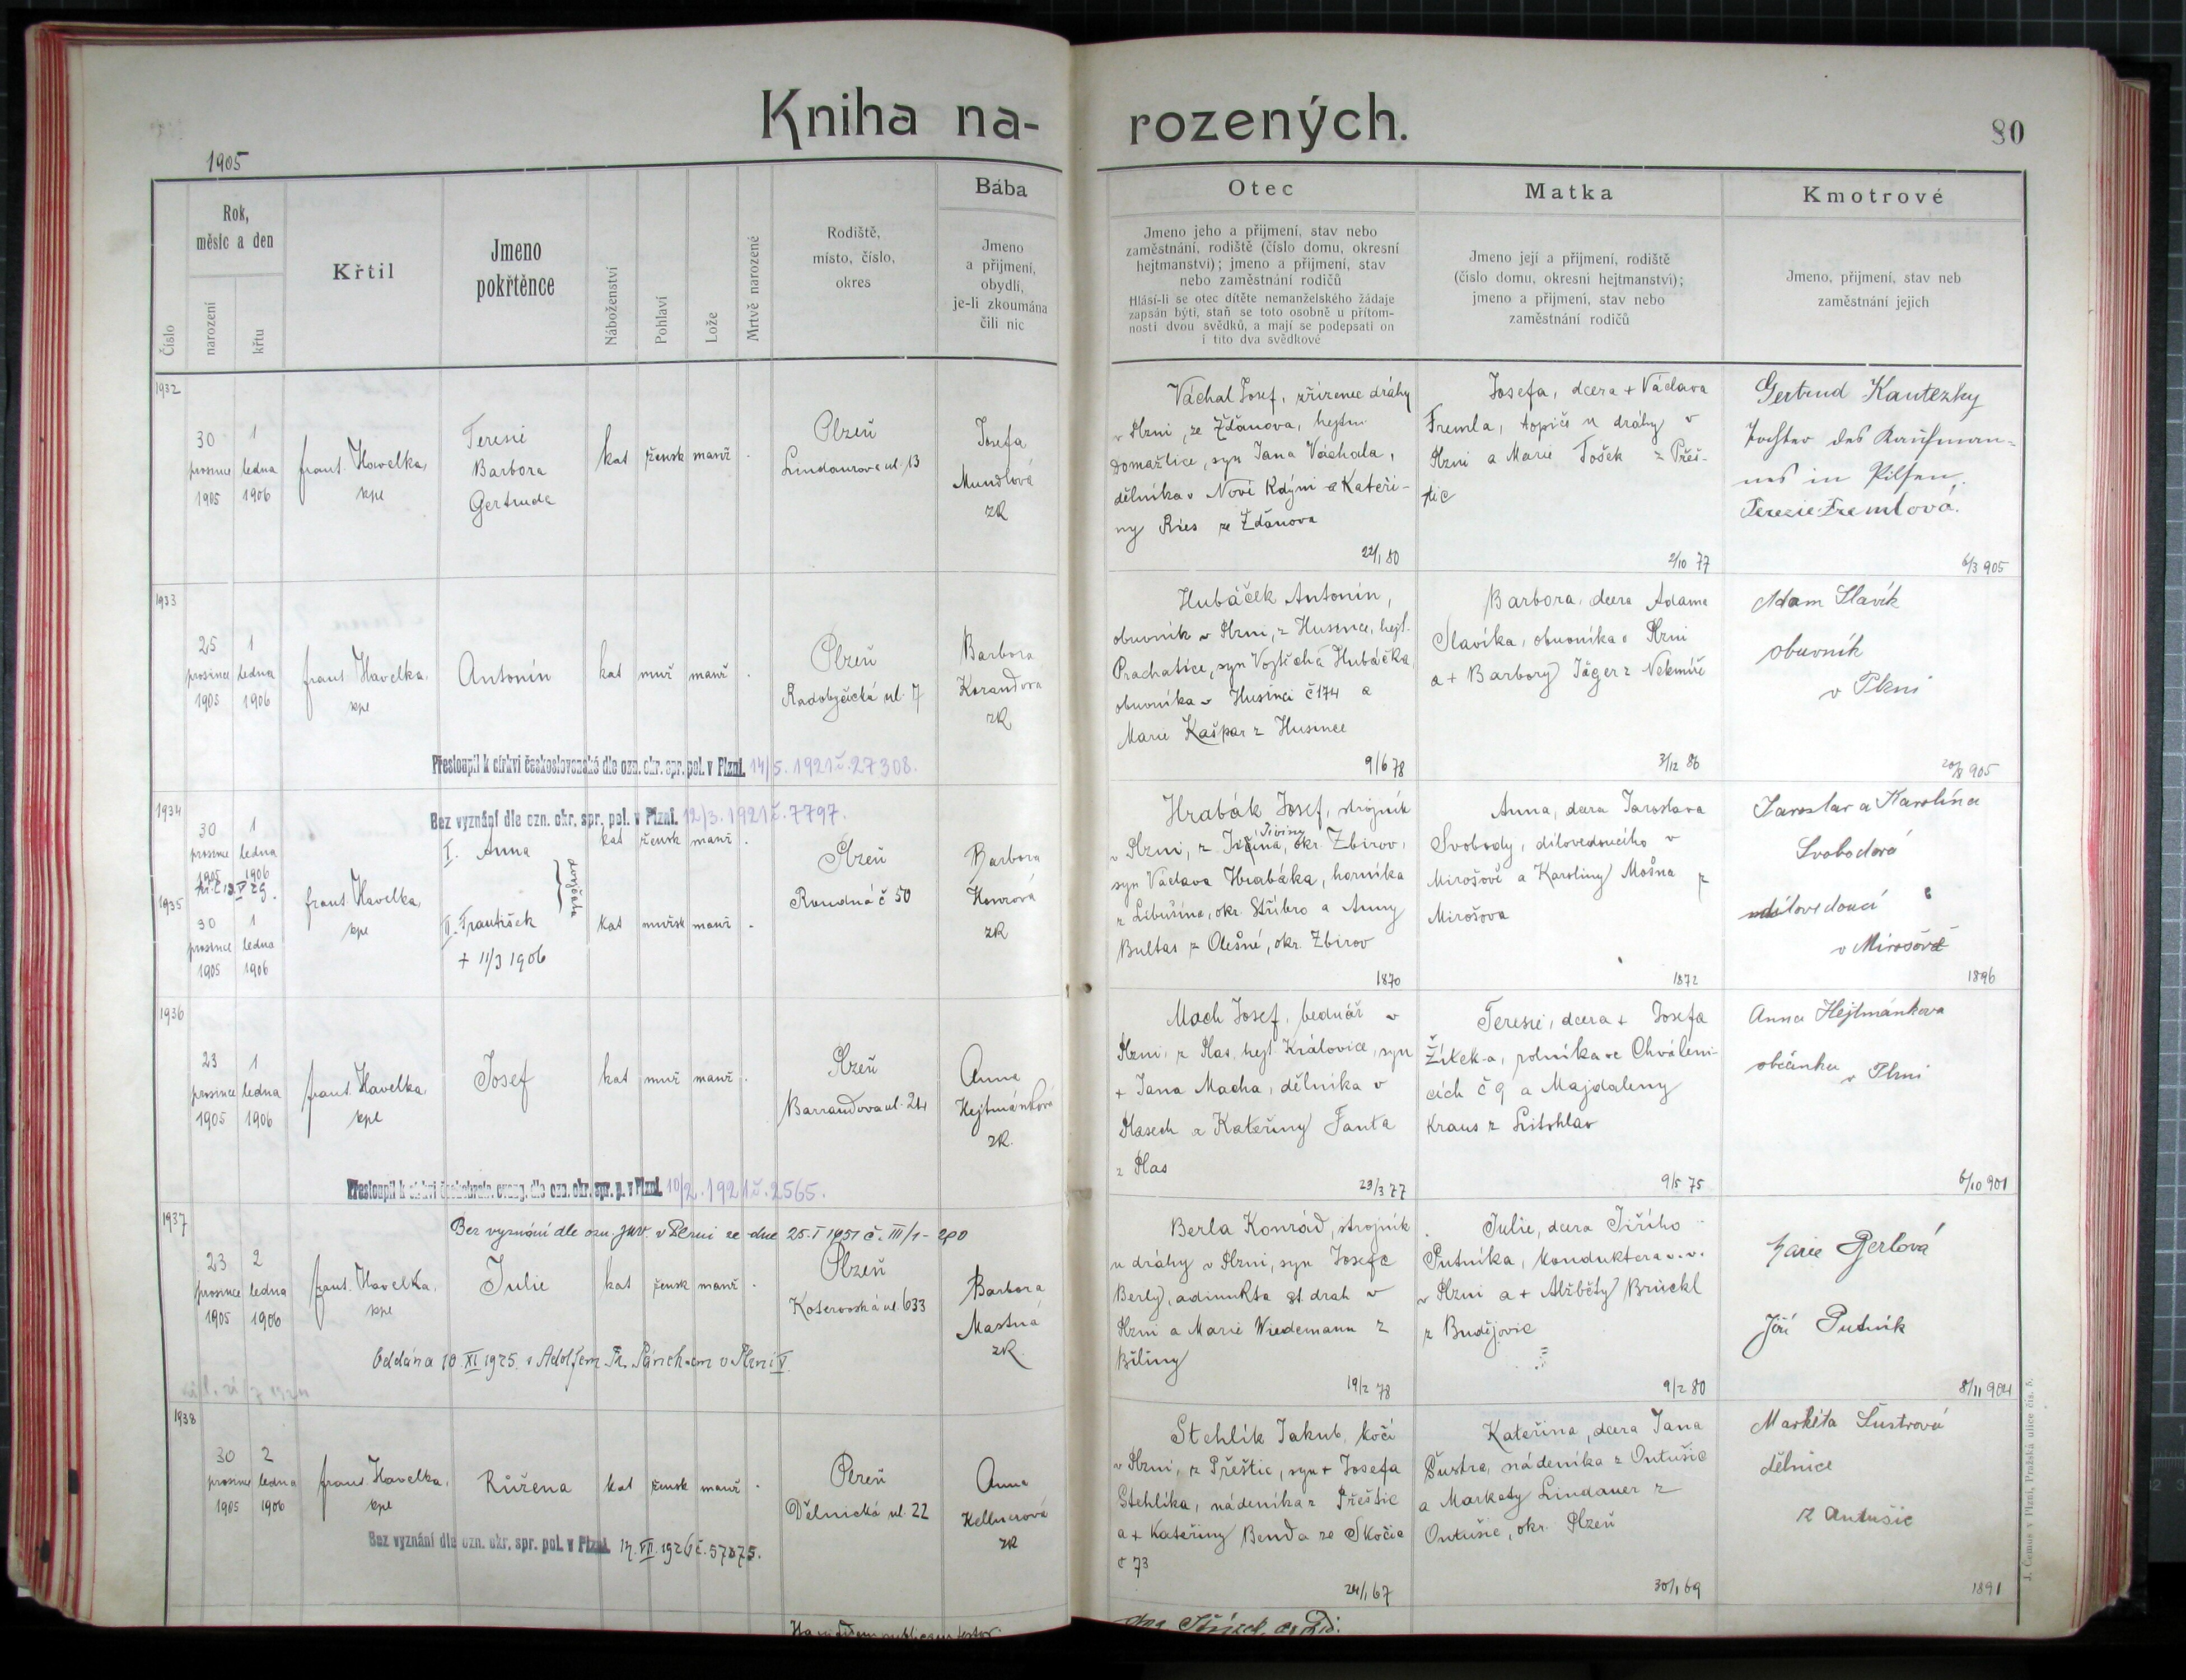 Kniha na-
rozených.
80
1905
Číslo
Rok,
měsíc a den
narození
křtu
Křtil
Jmeno
pokřtěnce
Náboženství
Pohlaví
Lože
Mrtvě narozené
Rodiště,
místo, číslo,
okres
Bába
Jmeno
a příjmení,
obydlí,
je-li zkoumána
čili nic
Otec
Jmeno jeho a příjmení, stav nebo
zaměstnání, rodiště (číslo domu, okresní
hejtmanství); jmeno a příjmení, stav
nebo zaměstnání rodičů
Hlásí-li se otec dítěte nemanželského žádaje
zapsán býti, staň se toto osobně u přítom-
nosti dvou svědků, a mají se podepsati on
i tito dva svědkové
Matka
Jmeno její a příjmení, rodiště
(číslo domu, okresní hejtmanství);
jmeno a příjmení, stav nebo
zaměstnání rodičů
Kmotrové
Jmeno, příjmení, stav neb
zaměstnání jejich
1932
30
prosince
1905
1
ledna
1906
frant. Havelka,
kpl
Teresie
Barbora
Gertruda
kat
žensk
manž
Plzeň
Lindaurova ul. 13
Josefa
Mundlová
zk
Váchal Josef, zřízenec dráhy
v Plzni, ze Žďánova, hejtm.
Domažlice, syn Jana Váchala,
dělníka v Nové Kdýni a Kateři-
ny Ries ze Žďánova
22/1 80
Josefa, dcera + Václava
Fremla, topiče u dráhy v
Plzni a Marie Tošek z Přeš-
tic
2/10 77
Gertrud Kautezky
Tochter des Kaufman-
nes in Pilsen.
Terezie Fremlová.
6/3 905
1933
25
prosince
1905
1
ledna
1906
frant. Havelka,
kpl
Antonín
kat
muž
manž
Plzeň
Radobyčická ul. 7
Barbora
Korandova
zk
Přestoupil k církvi československé dle ozn. okr. spr. pol. v Plzni. 14/5. 1921 č. 27308.
Hubáček Antonín,
obuvník v Plzni, z Husince, hejt.
Prachatice, syn Vojtěcha Hubáčka,
obuvníka v Husinci č 174 a
Marie Kašpar z Husince
9/6 78
Barbora, dcera Adama
Slavíka, obuvníka v Plzni
a + Barbory Jäger z Nekmíře
3/12 86
Adam Slavík
obuvník
v Plzni
905
1934
Bez vyznání dle ozn. okr. spr. pol. v Plzni. 12/3. 1921 č. 7797.
30
prosince
1905
1
ledna
1906
I. Anna
kat
žensk
manž
dvojčata
1935
30
prosince
1905
1
ledna
1906
frant. Havelka,
kpl
II. František
+ 11/3 1906
kat
mužsk
manž
Plzeň
Roudná č 50
Barbora
zk
Hrabák Josef, strojník
v Plzni, z okr. Zbirov,
syn Václava Hrabáka, horníka
z Libušína, okr. Stříbro a Anny
Bultas z Olešné, okr. Zbirov
1870
Anna, dcera Jaroslava
Svobody, dílovedoucího v
Mirošově a Karoliny Mošna z
Mirošova
1872
Jaroslav a Karolína
Svobodová
dílovedoucí
v Mirošově
1896
1936
23
prosince
1905
1
ledna
1906
frant. Havelka,
kpl
Josef
kat
muž
manž
Plzeň
Barrandova ul. 24
Anna
Hejtmánková
zk.
Přestoupil k církvi českobratr. evang. dle ozn. okr. spr. p. v Plzni. 10/2. 1921 č. 2565.
Mach Josef, bednář v
Plzni, z Plas, hejt. Kralovice, syn
+ Jana Macha, dělníka v
Plasech a Kateřiny Fanta
z Plas
23/3 77
Teresie, dcera + Josefa
Žitek-a, rolníka ve Chváleni-
cích č 9 a Majdaleny
Kraus z Litohlav
9/5 75
Anna Hejtmánkova
občanka v Plzni
6/10 901
1937
Bez vyznání dle ozn. JNV. v Plzni ze dne 25. I 1951 č. III/1-290
23
prosince
1905
2
ledna
1906
frant. Havelka,
kpl
Julie
kat
žensk
manž
Plzeň
Koterovská ul. 633
Barbora
Mastná
zk.
Oddána 10. XI 1925. s Adolfem Fr. v Plzni V.
Berla Konrád, strojník
u dráhy v Plzni, syn Josefa
Berly, adjunkta st. drah v
Plzni a Marie Wiedemann z
Biliny
19/2 78
Julie, dcera Jiřího
Putníka, konduktera v. v.
v Plzni a + Alžběty Brückl
z Budějovic
9/2 80
Marie Berlová
Jiří Putník
8/11 904
1938
30
prosince
1905
2
ledna
1906
frant. Havelka,
kpl
Růžena
kat
žensk
manž
Plzeň
Dělnická ul. 22
Anna
Kellnerová
zk
Bez vyznání dle ozn. okr. spr. pol. v Plzni. 17. VII. 1926 č. 57075.
Stehlík Jakub, kočí
v Plzni, z Přeštic, syn + Josefa
Stehlíka, nádeníka z Přeštic
a + Kateřiny Benda ze Skočic
č 73
24/1 67
Kateřina, dcera Jana
Šustra, nádeníka z Ontušic
a Markety Lindauer z
Ontušic, okr. Plzeň
30/1 69
Markéta Šustrová
dělnice
z Antušic
1891
J. Čemus v Plzni, Pražská ulice čís. 5.